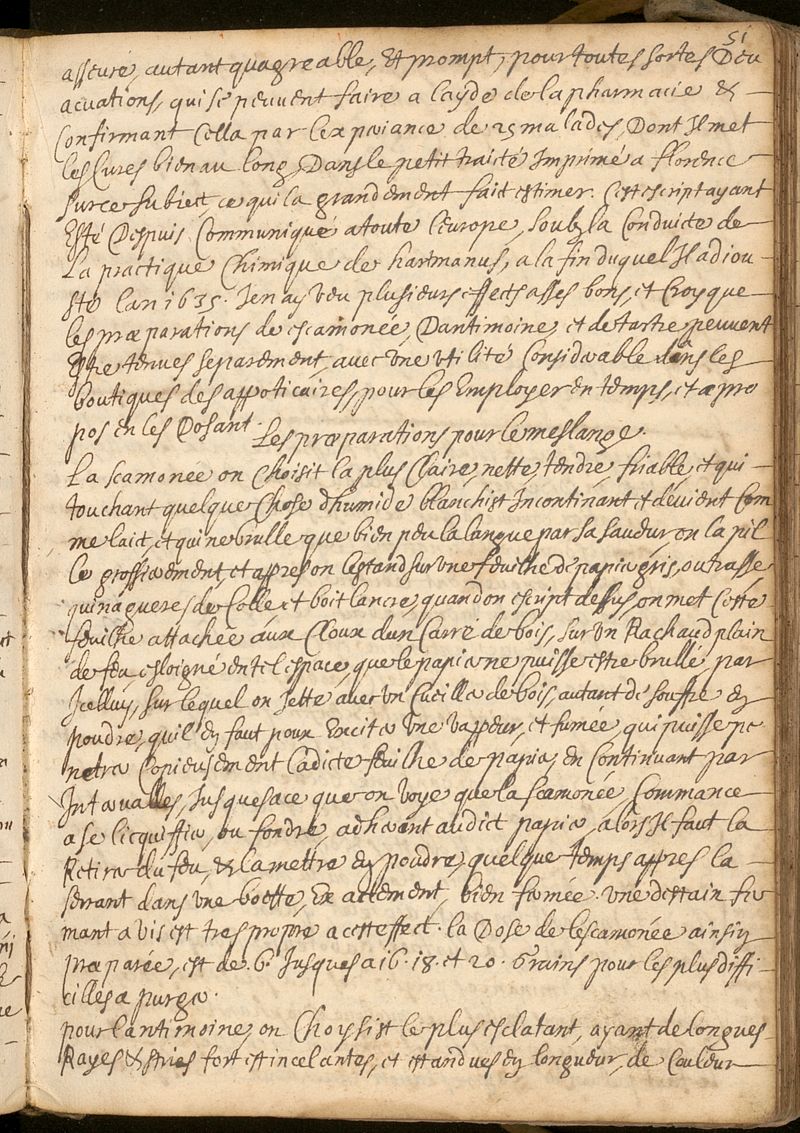 51
asseuré, autant quagreable, et prompt, pour toutes sortes Deu
acuations, qui se peuvent faire a layde de la pharmacie &
Confirmant Cella par lexpoiance de 25 malades, Dont Il met
les Cures bien au long, Dans le petit traité Imprimé a florence
sur ce subiect, ce qui la grandement faict estimer. Cest escript ayant
Esté Depuis Communiqué a toute l'europe, soubz la Conduicte de
La practique Chimique de hartmanus, a la fin duquel Il adiou
sté lan 1635. Jen ay veu plusieurs effects asses bons, et Croy que
les præparations de escamonée, Dantimoine et de tartre peuvent
Estre tenues separement, avec une utilité Considerable dans les
boutiques des appoticaires, pour les Employer en temps, et a pro
pos en les Dosant.
Les præparations pour le meslange.
La scamonée on Choisit la plus Claire, nette, tendre, friable et qui
touchant quelque Chose dhumide blanchist Incontinant et devient Com
me laict, et qui ne brulle que bien peu la langue par sa saveur, on la pil
le grossierement, et appres on lestand sur une feuilhe de papier gris, ou trasse
qui na gueres de Colle et boit lancre, quand on escript dessus, on met Ceste
feuilhe attachée aux Cloux dun Carré de bois, sur un Rachaud plain
de feu, esloigné en tel espace, que le papier ne puisse estre brullé par
Jcelluy, sur lequel on Jette avec un Cueiller de bois, autant de souffre en
poudre, quil en faut pour Exciter une vappeur, et fumée, qui puisse pe
netrer Copieusement Ladicte feuilhe de papier, en Continuant par
Intervalles, Jusques a ce que on voye que la scamonée, Commance
a se licquiffier, ou fondre, adherant audict papier, alors Il faut la
Retirer du feu, & la mettre en poudre, quelque temps appres la
serrant dans une boette, Exactement, bien fermée. une destain fer
mant a vis est tres propre a cest effect. la Dose de lescamonée ainsin
præparée, est de .6. Jusques a 16. 18. et 20. Grains pour les plus diffi
cilles a purger.
pour lantimoine, on Choysist le plus esclatant, ayant de longues
Rayes & stries fort estincelantes, et estandues en longueur, de Couleur